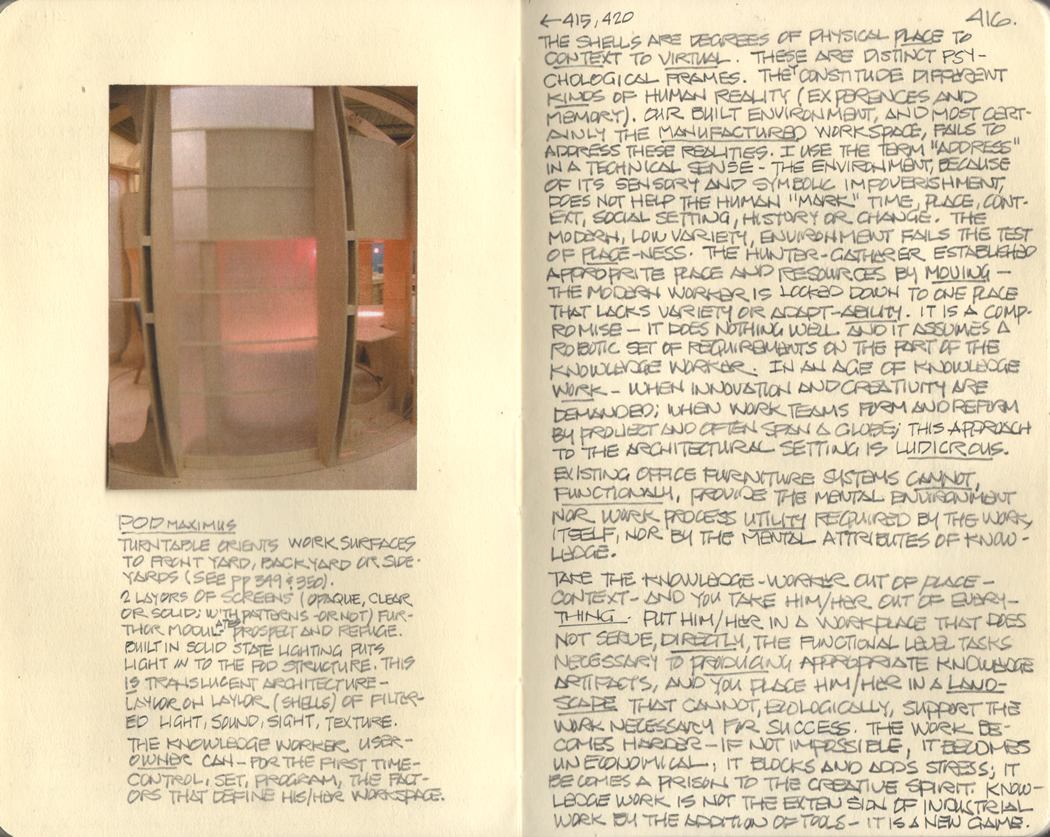 POD MAXIMUS
TURNTABLE ORIENTS WORK SURFACES
TO FRONT YARD, BACKYARD OR SIDE-
YARDS (SEE pp 349 & 350).
2 LAYORS OF SCREENS (OPAQUE, CLEAR
OR SOLID; WITH PATTERNS - OR NOT) FUR-
THOR MODULATES PROSPECT AND REFUGE.
BUILT IN SOLID STATE LIGHTING PUTS
LIGHT IN TO THE POD STRUCTURE. THIS
IS TRANSLUCENT ARCHITECTURE -
LAYOR ON LAYOR (SHELLS) OF FILTER-
ED LIGHT, SOUND, SIGHT, TEXTURE.
THE KNOWLEDGE WORKER USER-
OWNER CAN - FOR THE FIRST TIME -
CONTROL, SET, PROGRAM, THE FACT-
ORS THAT DEFINE HIS/HER WORKSPACE.
←415, 420
416.
THE SHELLS ARE DEGREES OF PHYSICAL PLACE TO
CONTEXT TO VIRTUAL. THESE ARE DISTINCT PSY-
CHOLOGICAL FRAMES. THEY CONSTITUDE DIFFERENT
KINDS OF HUMAN REALITY (EXPERENCES AND
MEMORY). OUR BUILT ENVIRONMENT, AND MOST CERT-
AINLY THE MANUFACTURED WORKSPACE, FAILS TO
ADDRESS THESE REALITIES. I USE THE TERM "ADDRESS"
IN A TECHNICAL SENSE - THE ENVIRONMENT, BECAUSE
OF ITS SENSORY AND SYMBOLIC IMPOVERISHMENT,
DOES NOT HELP THE HUMAN "MARK" TIME, PLACE, CONT-
EXT, SOCIAL SETTING, HISTORY OR CHANGE. THE
MODERN, LOW VARIETY, ENVIRONMENT FAILS THE TEST
OF PLACE-NESS. THE HUNTER-GATHERER ESTABLISHED
APPROPRITE PLACE AND RESOURCES BY MOVING -
THE MODERN WORKER IS LOCKED DOWN TO ONE PLACE
THAT LACKS VARIETY OR ADAPT-ABILITY. IT IS A COMP-
ROMISE - IT DOES NOTHING WELL AND IT ASSUMES A
ROBOTIC SET OF REQUIREMENTS ON THE PART OF THE
KNOWLEDGE WORKER. IN AN AGE OF KNOWLEDGE
WORK - WHEN INNOVATION AND CREATIVITY ARE
DEMANDED; WHEN WORK TEAMS FORM AND REFORM
BY PROJECT AND OFTEN SPAN A GLOBE; THIS APPROACH
TO THE ARCHITECTURAL SETTING IS LUDICROUS.
EXISTING OFFICE FURNITURE SYSTEMS CANNOT,
FUNCTIONALY, PROVIDE THE MENTAL ENVIRONMENT
NOR WORK PROCESS UTILITY REQUIRED BY THE WORK,
ITSELF, NOR BY THE MENTAL ATTRIBUTES OF KNOW-
LEDGE.
TAKE THE KNOWLEDGE-WORKER OUT OF PLACE -
CONTEXT - AND YOU TAKE HIM/HER OUT OF EVERY-
THING. PUT HIM/HER IN A WORKPLACE THAT DOES
NOT SERVE, DIRECTLY, THE FUNCTIONAL LEVEL TASKS
NECESSARY TO PRODUCING APPROPRIATE KNOWLEDGE
ARTIFACTS, AND YOU PLACE HIM/HER IN A LAND-
SCAPE THAT CANNOT, ECOLOGICALLY, SUPPORT THE
WORK NECESSARY FOR SUCCESS. THE WORK BE-
COMES HARDER - IF NOT IMPOSSIBLE, IT BECOMES
UNECONOMICAL; IT BLOCKS AND ADDS STRESS; IT
BECOMES A PRISON TO THE CREATIVE SPIRIT. KNOW-
LEDGE WORK IS NOT THE EXTENSION OF INDUSTRIAL
WORK BY THE ADDITION OF TOOLS - IT IS A NEW GAME.